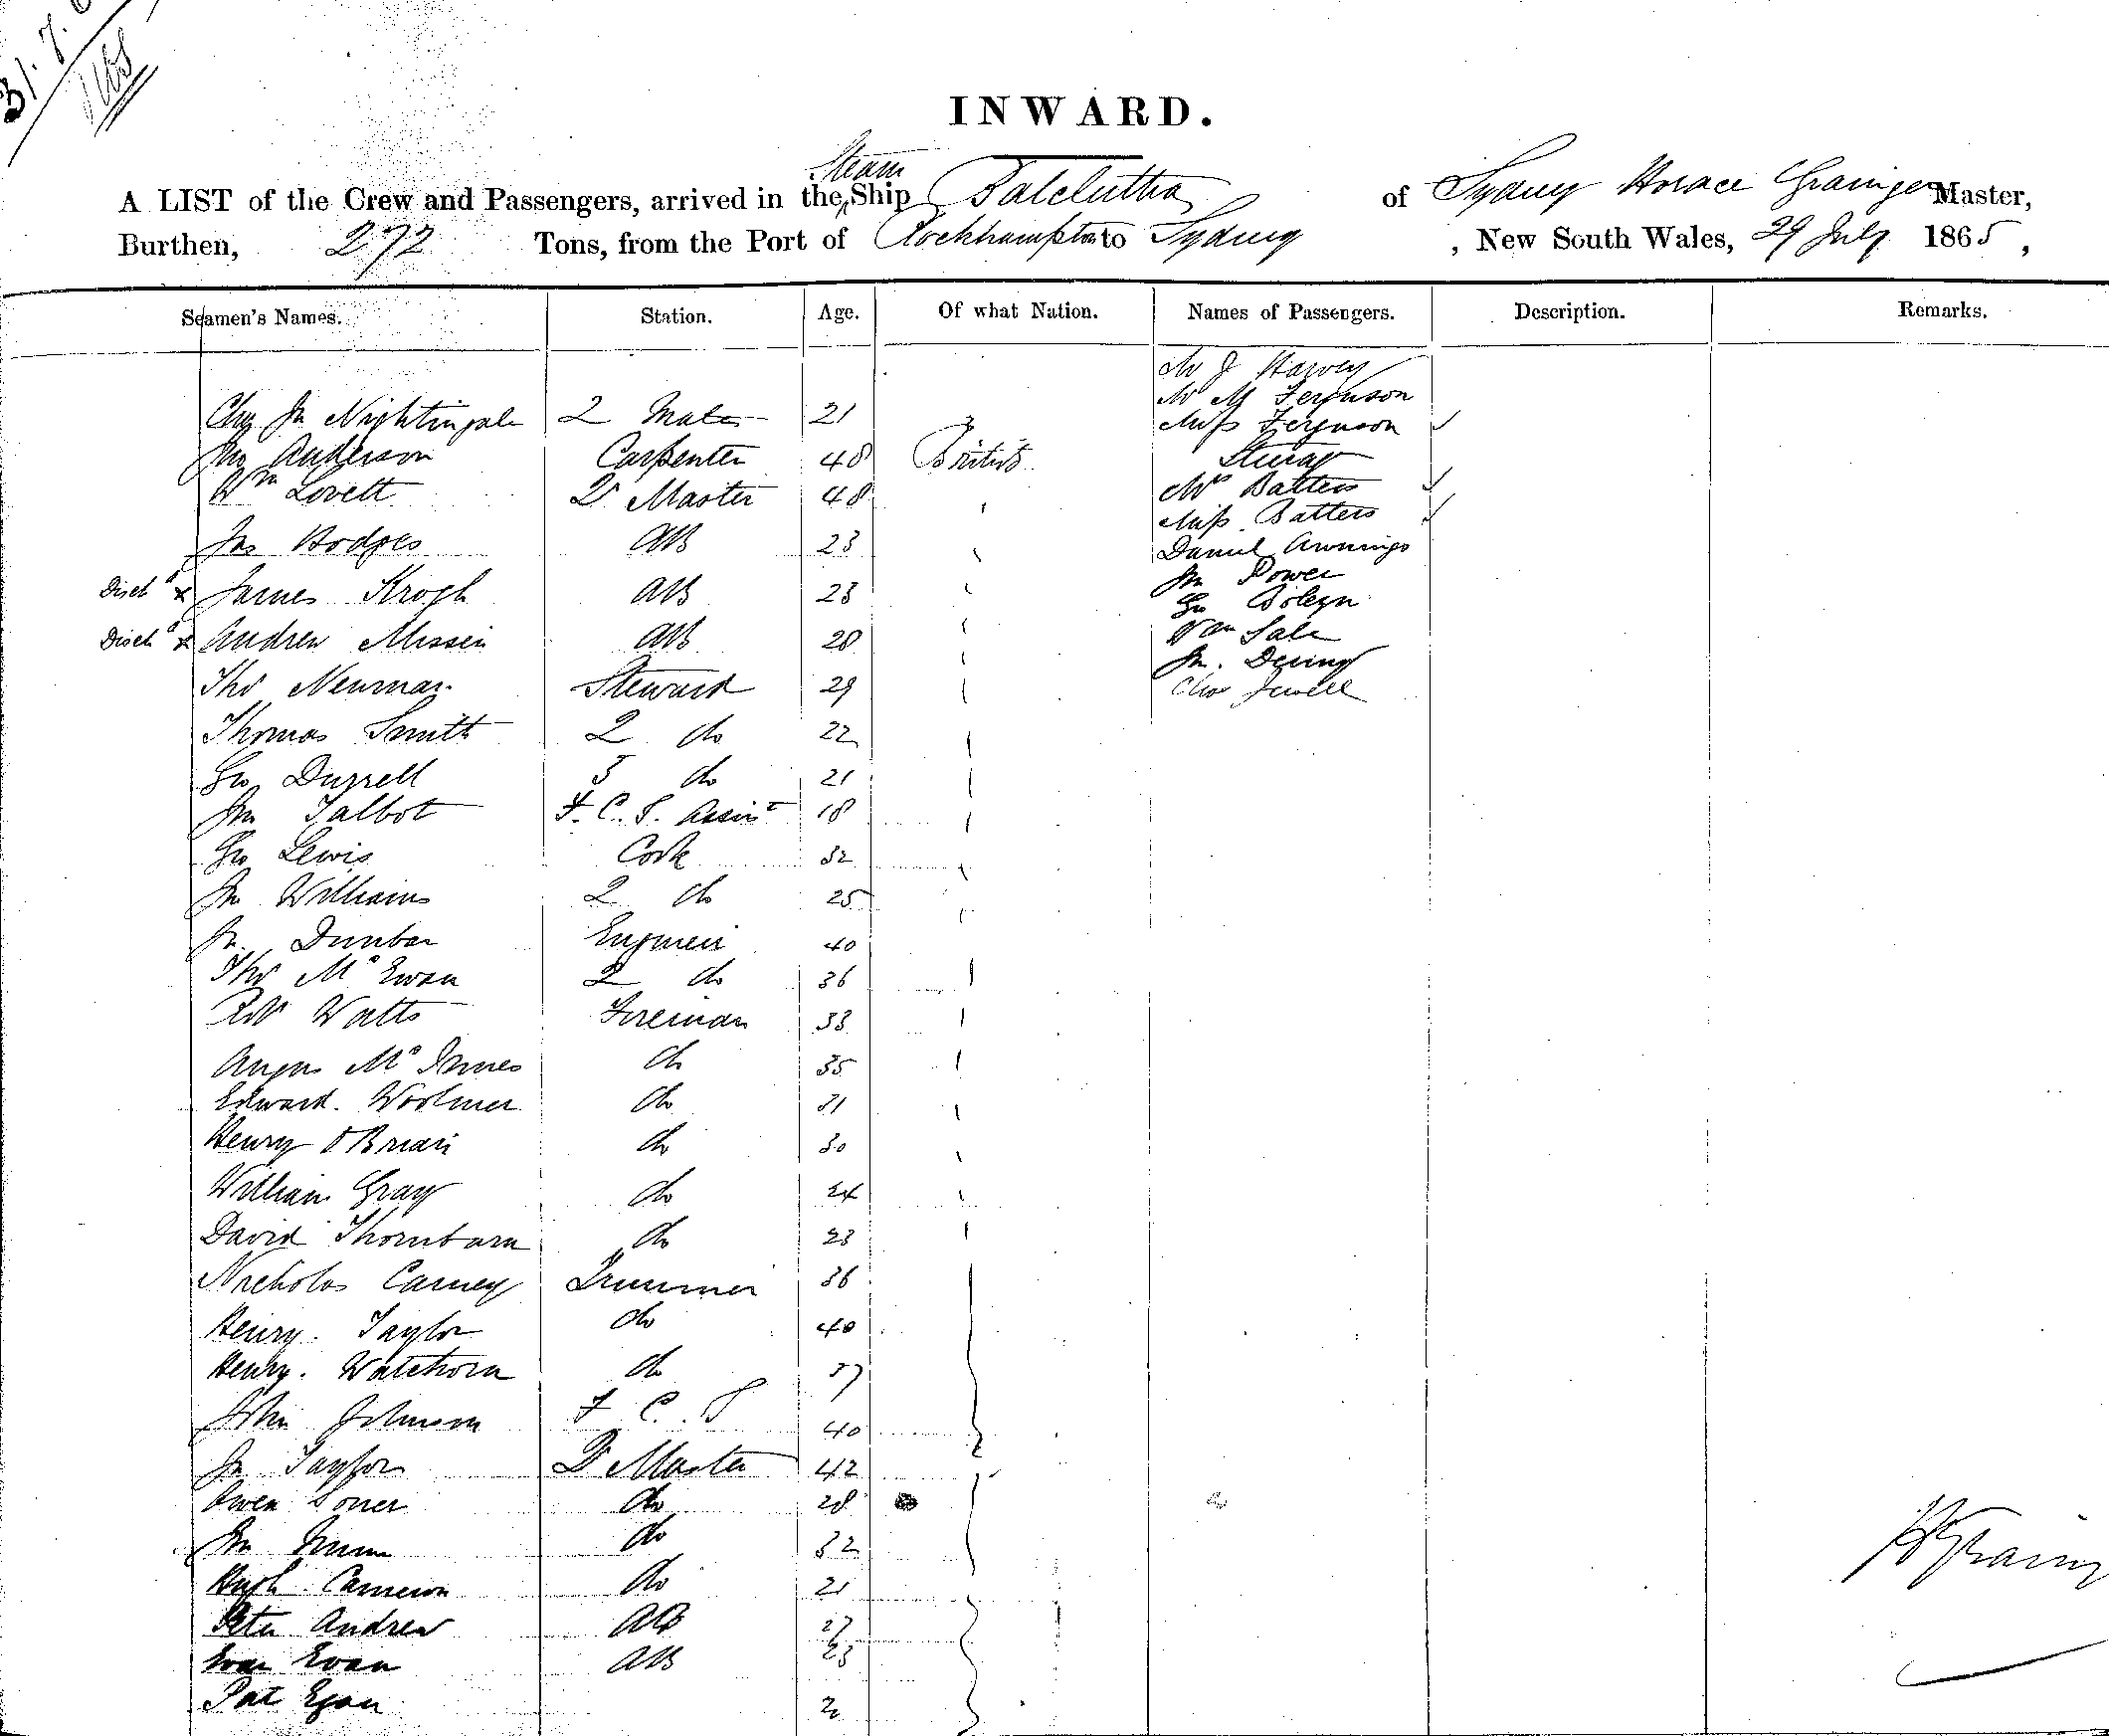 INWARD.
Steam
A LIST of the Crew and Passengers, arrived in the Ship Balclutha of Sydney Horace Grainger Master,
Burthen, 272 Tons, from the Port of Rockhampton to Sydney, New South Wales, 29 July 1865,
Seamen's Names. Station. Age. Of what Nation. Names of Passengers. Description. Remarks.
Mr J Harvey
Mr M Ferguson
Chs Jn Nightingale 2 Mate 21 Miss Ferguson
Jno Anderson Carpenter 48 British Steerage
Wm Lovett Qr Master 48 Mrs Batters
Miss Batters
Jas Hodges AB 23 Daniel Awnings
Jn Power
Disch x James Krogh AB 23 Geo Boleyn
Disch x Andrew Missen AB 28 Wm Sale
Jn. Dering
Tho Newman Steward 29 Chas Jewell
Thomas Smith 2 do 22
Geo Durrell 3 do 21
Jno Talbot F. C. S. Assist 18
Geo Lewis Cook 32
Jn Williams 2 do 25
Jn. Dunbar Engineer 40
Tho McEwan 2 do 36
Robt Watts Fireman 33
Angus McInnes do 35
Edward. Woolmer do 31
Henry O'Brian do 30
William Gray do 24
David Thornburn do 23
Nicholas Carney Trimmer 36
Henry. Taylor do 40
Henry. Watehorn do 37
John Johnson F C S 40
Jn Taylor Qr Master 42
Owen do 28
Jn do 32
Hugh Cameron do 21
Peter Andrew AB 27
Evan Evan AB 23
Pat Egan 20